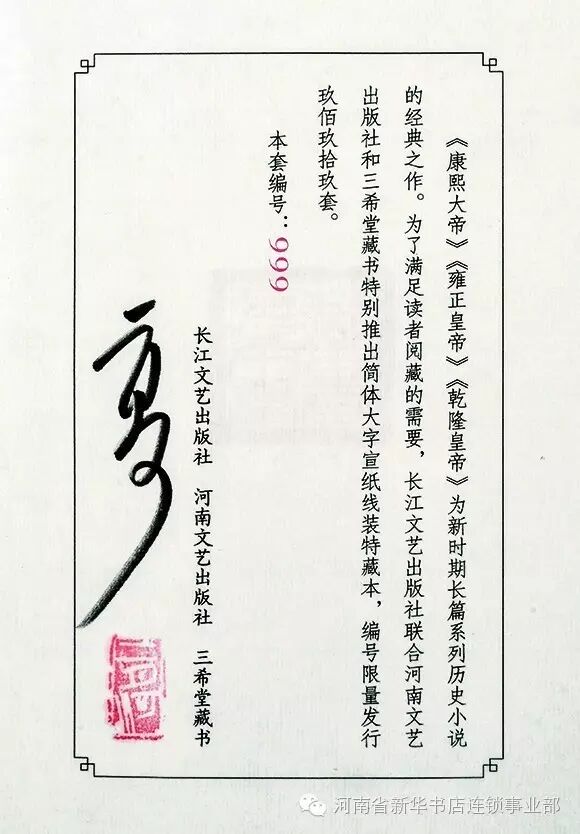 《康熙大帝》《雍正皇帝》《乾隆皇帝》为新时期长篇系列历史小说
的经典之作。为了满足读者阅藏的需要，长江文艺出版社联合河南文艺
出版社和三希堂藏书特别推出简体大字宣纸线装特藏本，编号限量发行
玖佰玖拾玖套。
本套编号：999
长江文艺出版社 河南文艺出版社 三希堂藏书
河南省新华书店连锁事业部